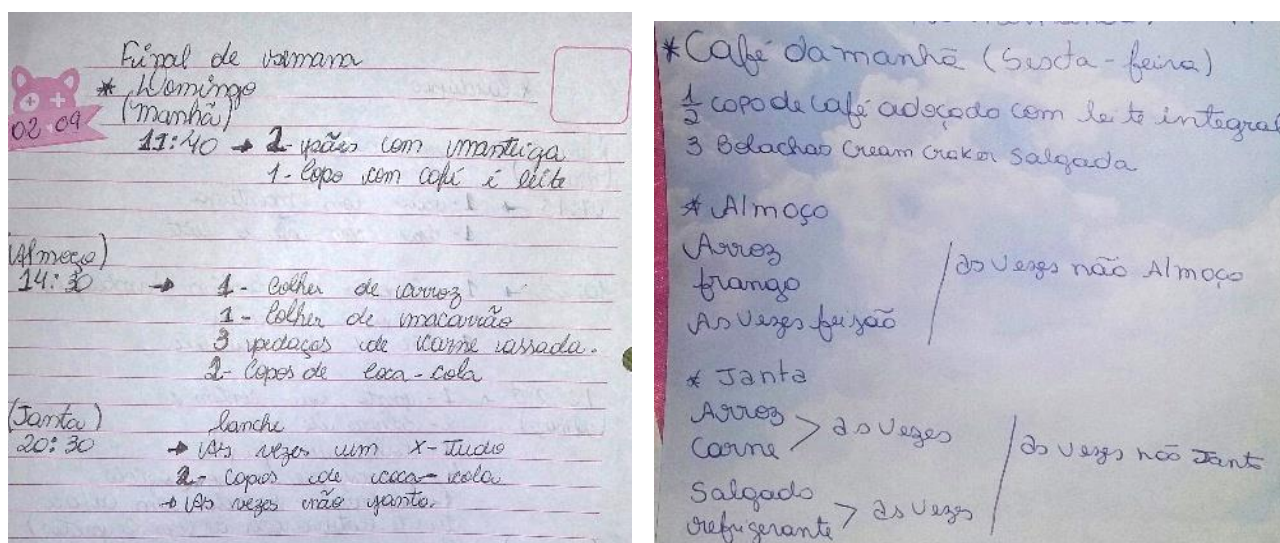 Final de semana
* Domingo
02 09
(Manhã)
11:40 → 2- pães com manteiga
1- Copo com café é leite
(Almoço)
14:30 → 1- Colher de arroz
1- Colher de macarrão
3 pedaços de carne assada.
2- Copos de coca-cola
(Janta) lanche
20:30 → As vezes um X-Tudo
2- Copos de coca-cola
→ As vezes não janto.
* Café da manhã (Sexta-feira)
1/2 copo de café adoçado com leite integral
3 Bolachas Cream Craker Salgada
* Almoço
Arroz
frango
As vezes feijão
às vezes não Almoço
* Janta
Arroz
Carne > às vezes
Salgado
refrigerante > às vezes
às vezes não Janto